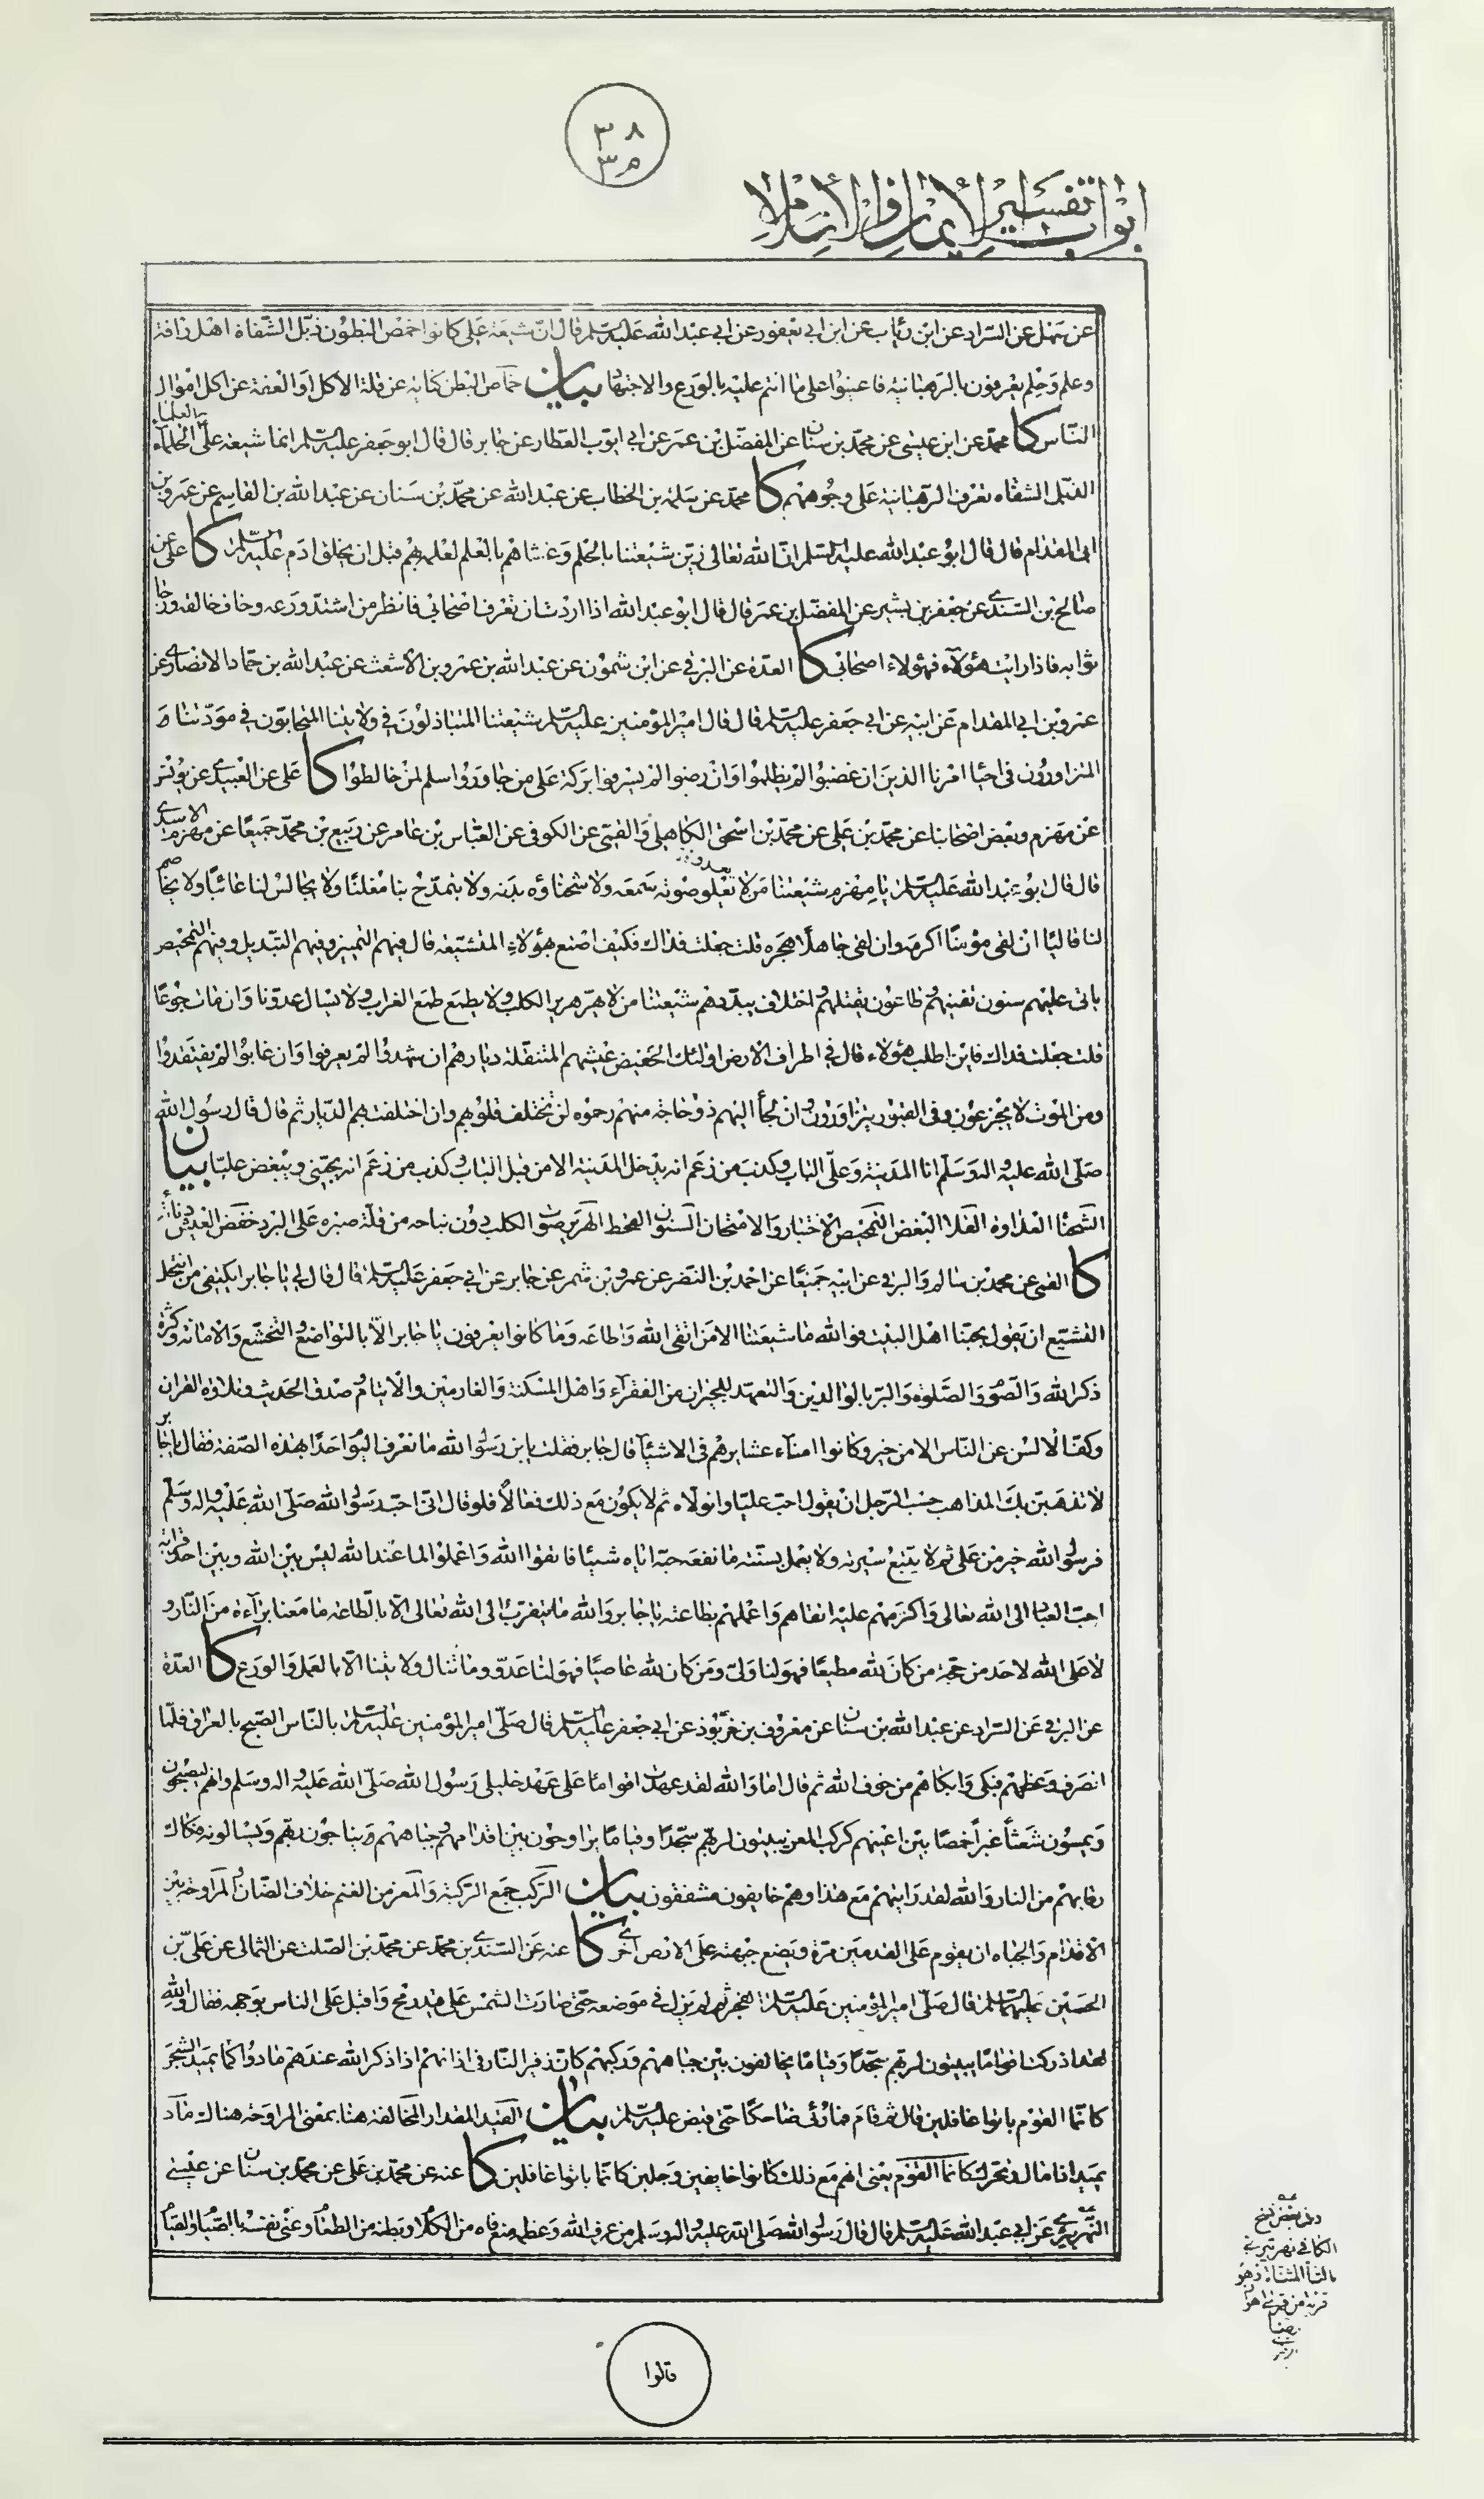 ٣٨
م٣
ابواب تفسير الايمان والاسلام
عن سهل عن السراد عن ابن رئاب عن ابن ابي يعفور عن ابي عبد الله عليه السلم قال ان شيعة علي كانوا خمص البطون ذبل الشفاه اهل رافة
وعلم وحلم يعرفون بالرهبانية فاعينوا على ما انتم عليه بالورع والاجتهاد بيان خماص البطن كناية عن قلة الاكل او العفة عن اكل اموال
الناس كا محمد عن ابن عيسى عن محمد بن سنان عن المفضل بن عمر عن ابي ايوب العطار عن جابر قال قال ابو جعفر عليه السلم انما شيعة علي الحلماء العلماء
الذبل الشفاه تعرف الرهبانية على وجوههم كا محمد عن سلمة بن الخطاب عن عبد الله عن محمد بن سنان عن عبد الله بن القاسم عن عمرو بن
ابي المقدام قال قال ابو عبد الله عليه السلم ان الله تعالى زين شيعتنا بالحلم وغشاهم بالعلم لعلمه بهم قبل ان يخلق ادم عليه السلم كا علي عن
صالح بن السندي عن جعفر بن بشير عن المفضل بن عمر قال قال ابو عبد الله اذا اردت ان تعرف اصحابي فانظر من اشتد ورعه وخاف خالقه ورجا
ثوابه فاذا رايت هؤلاء فهؤلاء اصحابي كا العدة عن البرقي عن ابن شمون عن عبد الله بن عمرو بن الاشعث عن عبد الله بن حماد الانصاري عن
عمرو بن ابي المقدام عن ابيه عن ابي جعفر عليه السلم قال قال امير المؤمنين عليه السلم شيعتنا المتباذلون في ولايتنا المتحابون في مودتنا
المتزاورون في احيا امرنا الذين ان غضبوا لم يظلموا وان رضوا لم يسرفوا بركة على من جاوروا سلم لمن خالطوا كا علي عن العبيدي عن يونس
عن مهزم وبعض اصحابنا عن محمد بن علي عن محمد بن اسحق الكاهلي والقمي عن الكوفي عن العباس بن عامر عن ربيع بن محمد جميعا عن مهزم الاسدي
قال قال ابو عبد الله عليه السلم يا مهزم شيعتنا من لا يعدو صوته سمعه ولا شحناؤه بدنه ولا يتمدح بنا معلنا ولا يجالس لنا عائبا ولا يخاصم
لنا قاليا ان لقي مؤمنا اكرمه وان لقي جاهلا هجره قلت جعلت فداك فكيف اصنع بهؤلاء المتشيعة قال فيهم التمييز وفيهم التبديل وفيهم التمحيص
ياتي عليهم سنون تفنيهم وطاعون يقتلهم واختلاف يبددهم شيعتنا من لا يهر هرير الكلب ولا يطمع طمع الغراب ولا يسال عدونا وان مات جوعا
قلت جعلت فداك فاين اطلب هؤلاء قال في اطراف الارض اولئك الخفيض عيشهم المتنقلة ديارهم ان شهدوا لم يعرفوا وان غابوا لم يفتقدوا
ومن الموت لا يجزعون وفي القبور يتزاورون وان لجأ اليهم ذو حاجة منهم رحموه لن تختلف قلوبهم وان اختلفت بهم الديار ثم قال قال رسول الله
صلى الله عليه واله وسلم انا المدينة وعلي الباب وكذب من زعم انه يدخل المدينة الا من قبل الباب وكذب من زعم انه يحبني ويبغض عليا بيان
الشحنا العداوة القلا البغض التمحيص الاختبار والامتحان السنون القحط الهرير صوت الكلب دون نباحه من قلة صبره على البرد خفض العيش دنائته
كا القمي عن محمد بن سالم والبرقي عن ابيه جميعا عن احمد بن النضر عن عمرو بن شمر عن جابر عن ابي جعفر عليه السلم قال قال لي يا جابر ايكتفي من انتحل
التشيع ان يقول بحبنا اهل البيت فوالله ما شيعتنا الا من اتقى الله واطاعه وما كانوا يعرفون يا جابر الا بالتواضع والتخشع والامانة وكثرة
ذكر الله والصوم والصلوة والبر بالوالدين والتعهد للجيران من الفقراء واهل المسكنة والغارمين والايتام وصدق الحديث وتلاوة القران
وكف الالسن عن الناس الا من خير وكانوا امناء عشايرهم في الاشياء قال جابر فقلت يابن رسول الله ما نعرف اليوم احدا بهذه الصفة فقال يا جابر
لا تذهبن بك المذاهب حسب الرجل ان يقول احب عليا واتولاه ثم لا يكون مع ذلك فعالا فلو قال اني احب رسول الله صلى الله عليه واله وسلم
فرسول الله خير من علي ثم لا يتبع سيرته ولا يعمل بسنته ما نفعه حبه اياه شيئا فاتقوا الله واعملوا لما عند الله ليس بين الله وبين احد قرابة
احب العباد الى الله تعالى واكرمهم عليه اتقاهم واعملهم بطاعته يا جابر والله ما يتقرب الى الله تعالى الا بالطاعة ما معنا براءة من النار و
لا على الله لاحد من حجة من كان لله مطيعا فهو لنا ولي ومن كان لله عاصيا فهو لنا عدو وما تنال ولايتنا الا بالعمل والورع كا العدة
عن البرقي عن السراد عن عبد الله بن سنان عن معروف بن خربوذ عن ابي جعفر عليه السلم قال صلى امير المؤمنين عليه السلم بالناس الصبح بالعراق فلما
انصرف وعظهم فبكى وابكاهم من خوف الله ثم قال اما والله لقد عهدت اقواما على عهد خليلي رسول الله صلى الله عليه واله وسلم وانهم ليصبحون
ويمسون شعثا غبرا خمصا بين اعينهم كركب المعزي يبيتون لربهم سجدا وقياما يراوحون بين اقدامهم وجباههم يناجون ربهم ويسالونه فكاك
رقابهم من النار والله لقد رايتهم مع هذا وهم خايفون مشفقون بيان الركب جمع الركبة والمعز من الغنم خلاف الضان والمراوحة بين
الاقدام والجباه ان يقوم على القدمين مرة ويضع جبهته على الارض اخرى كا عنه عن السندي بن محمد عن محمد بن الصلت عن الثمالي عن علي بن
الحسين عليهما السلم قال صلى امير المؤمنين عليه السلم الفجر ثم لم يزل في موضعه حتى صارت الشمس على قيد رمح واقبل على الناس بوجهه فقال والله
لقد ادركت اقواما يبيتون لربهم سجدا وقياما يخالفون بين جباههم وركبهم كان زفير النار في اذانهم اذا ذكر الله عندهم مادوا كما يميد الشجر
كانما القوم باتوا غافلين قال ثم قام فما رئي ضاحكا حتى قبض عليه السلم بيان القيد المقدار المخالفة هنا بمعنى المراوحة هناك ماد
يميد اذا مال وتحرك كانما القوم يعني انهم مع ذلك كانوا خايفين وجلين كانما باتوا غافلين كا عنه عن محمد بن علي عن محمد بن سنان عن عيسى
النهريري عن ابي عبد الله عليه السلم قال قال رسول الله صلى الله عليه واله وسلم من عرف الله وعظمه منع فاه من الكلام وبطنه من الطعام وعنى نفسه بالصيام والقيام
وفي بعض نسخ
الكافي نهر تيري
بالتاء المثناة وهو
قرية من قرى اهواز
قالوا